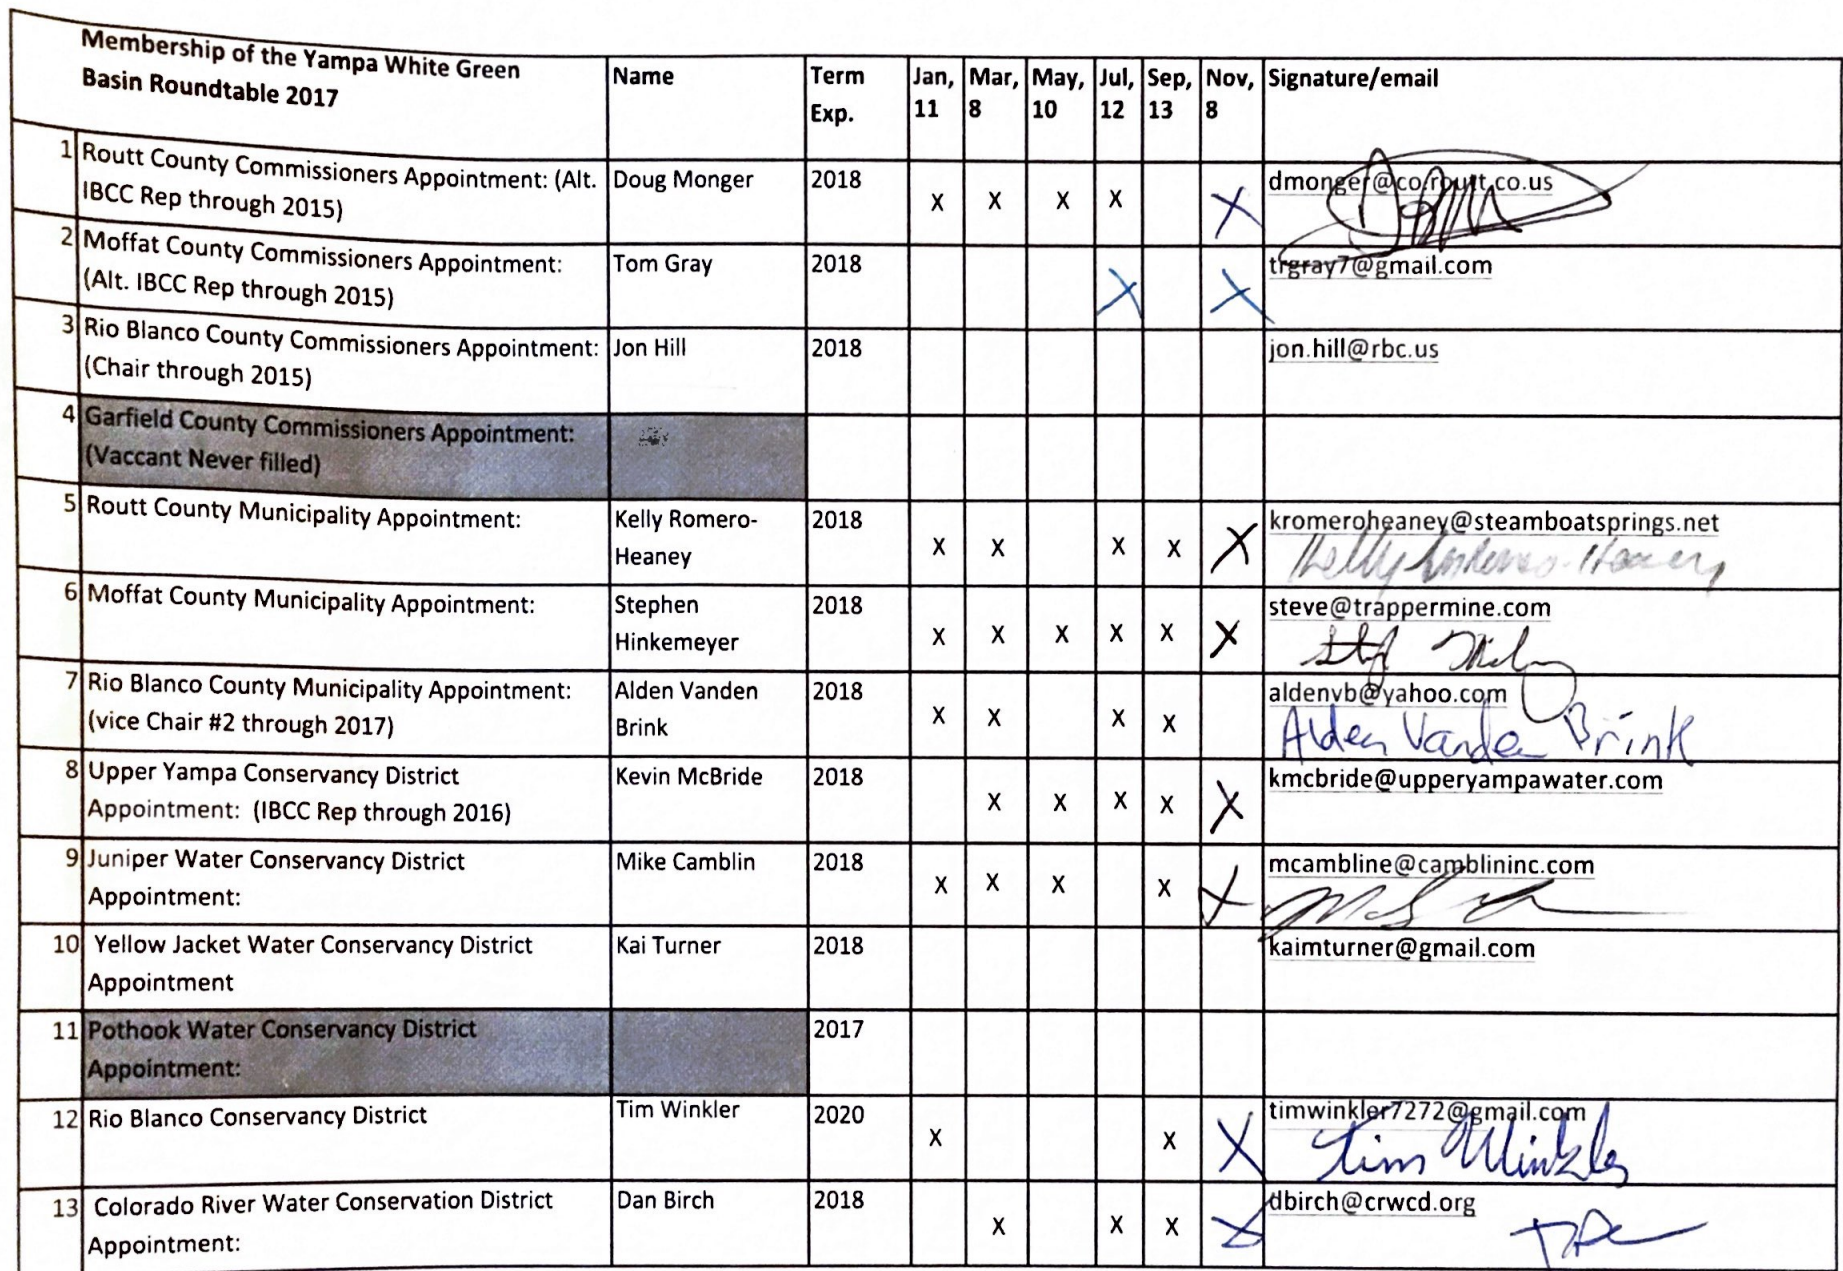 Membership of the Yampa White Green
Basin Roundtable 2017
Name
Term
Exp.
Jan,
11
Mar,
8
May,
10
Jul,
12
Sep,
13
Nov,
8
Signature/email
1 Routt County Commissioners Appointment: (Alt.
IBCC Rep through 2015)
Doug Monger
2018
X X X X X
dmonger@co.routt.co.us
2 Moffat County Commissioners Appointment:
(Alt. IBCC Rep through 2015)
Tom Gray
2018
X X
trgray7@gmail.com
3 Rio Blanco County Commissioners Appointment:
(Chair through 2015)
Jon Hill
2018
jon.hill@rbc.us
4 Garfield County Commissioners Appointment:
(Vaccant Never filled)
5 Routt County Municipality Appointment:
Kelly Romero-
Heaney
2018
X X X X X
kromeroheaney@steamboatsprings.net
Kelly Romero-Heaney
6 Moffat County Municipality Appointment:
Stephen
Hinkemeyer
2018
X X X X X X
steve@trappermine.com
7 Rio Blanco County Municipality Appointment:
(vice Chair #2 through 2017)
Alden Vanden
Brink
2018
X X X X
aldenvb@yahoo.com
Alden Vanden Brink
8 Upper Yampa Conservancy District
Appointment: (IBCC Rep through 2016)
Kevin McBride
2018
X X X X X
kmcbride@upperyampawater.com
9 Juniper Water Conservancy District
Appointment:
Mike Camblin
2018
X X X X X
mcambline@camblininc.com
10 Yellow Jacket Water Conservancy District
Appointment
Kai Turner
2018
kaimturner@gmail.com
11 Pothook Water Conservancy District
Appointment:
2017
12 Rio Blanco Conservancy District
Tim Winkler
2020
X X X
timwinkler7272@gmail.com
Tim Winkler
13 Colorado River Water Conservation District
Appointment:
Dan Birch
2018
X X X X
dbirch@crwcd.org